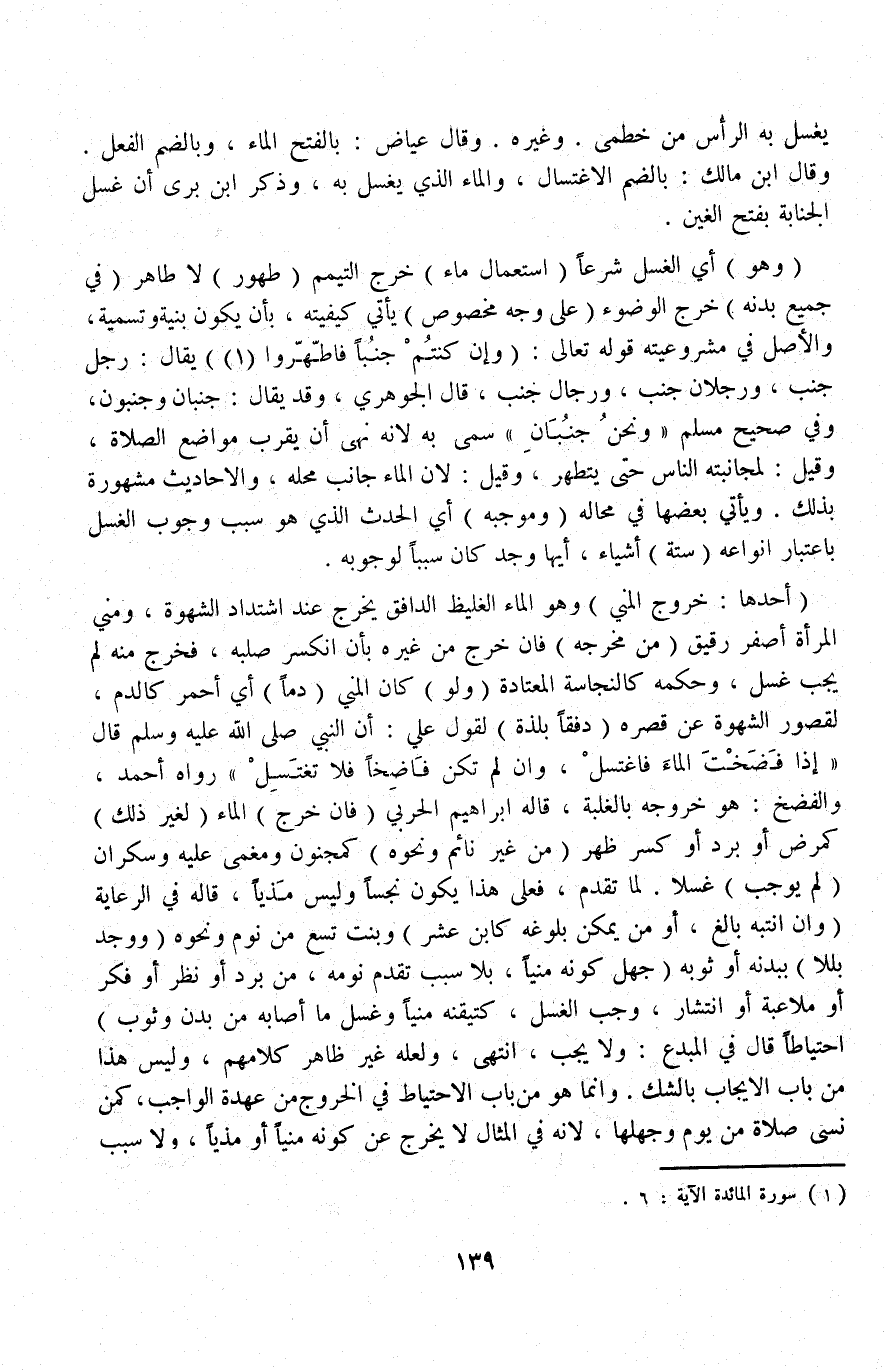 يغسل به الرأس من خطمى . وغيره . وقال عياض : بالفتح الماء ، وبالضم الفعل .
وقال ابن مالك : بالضم الاغتسال ، والماء الذي يغسل به ، وذكر ابن برى أن غسل
الجنابة بفتح الغين .
( وهو ) أي الغسل شرعاً ( استعمال ماء ) خرج التيمم ( طهور ) لا طاهر ( في
جميع بدنه ) خرج الوضوء ( على وجه مخصوص ) يأتي كيفيته ، بأن يكون بنية وتسمية،
والأصل في مشروعيته قوله تعالى : ( وإن كنتُمْ جنُباً فاطّهّروا (١) ) يقال : رجل
جنب ، ورجلان جنب ، ورجال جنب ، قال الجوهري ، وقد يقال : جنبان وجنبون،
وفي صحيح مسلم « ونحنُ جنُبَانِ » سمى به لانه نهى أن يقرب مواضع الصلاة ،
وقيل : لمجانبته الناس حتى يتطهر ، وقيل : لان الماء جانب محله ، والاحاديث مشهورة
بذلك . ويأتي بعضها في محاله ( وموجبه ) أي الحدث الذي هو سبب وجوب الغسل
باعتبار انواعه ( ستة ) أشياء ، أيها وجد كان سبباً لوجوبه .
( أحدها : خروج المني ) وهو الماء الغليظ الدافق يخرج عند اشتداد الشهوة ، ومني
المرأة أصفر رقيق ( من مخرجه ) فان خرج من غيره بأن انكسر صلبه ، فخرج منه لم
يجب غسل ، وحكمه كالنجاسة المعتادة ( ولو ) كان المني ( دماً ) أي أحمر كالدم ،
لقصور الشهوة عن قصره ( دفقاً بلذة ) لقول علي : أن النبي صلى الله عليه وسلم قال
« إذا فَضَخْتَ الماءَ فاغتسلْ ، وان لم تكن فَاضِخاً فلا تغتَسِلْ » رواه أحمد ،
والفضخ : هو خروجه بالغلبة ، قاله ابراهيم الحربي ( فان خرج ) الماء ( لغير ذلك )
كمرض أو برد أو كسر ظهر ( من غير نائم ونحوه ) كمجنون ومغمى عليه وسكران
( لم يوجب ) غسلا . لما تقدم ، فعلى هذا يكون نجساً وليس مَذياً ، قاله في الرعاية
( وان انتبه بالغ ، أو من يمكن بلوغه كابن عشر ) وبنت تسع من نوم ونحوه ( ووجد
بللا ) ببدنه أو ثوبه ( جهل كونه منياً ، بلا سبب تقدم نومه ، من برد أو نظر أو فكر
أو ملاعبة أو انتشار ، وجب الغسل ، كتيقنه منياً وغسل ما أصابه من بدن وثوب )
احتياطاً قال في المبدع : ولا يجب ، انتهى ، ولعله غير ظاهر كلامهم ، وليس هذا
من باب الايجاب بالشك . وانما هو من باب الاحتياط في الخروج من عهدة الواجب، كمن
نسى صلاة من يوم وجهلها ، لانه في المثال لا يخرج عن كونه منياً أو مذياً ، ولا سبب
( ١ ) سورة المائدة الآية : ٦ .
١٣٩